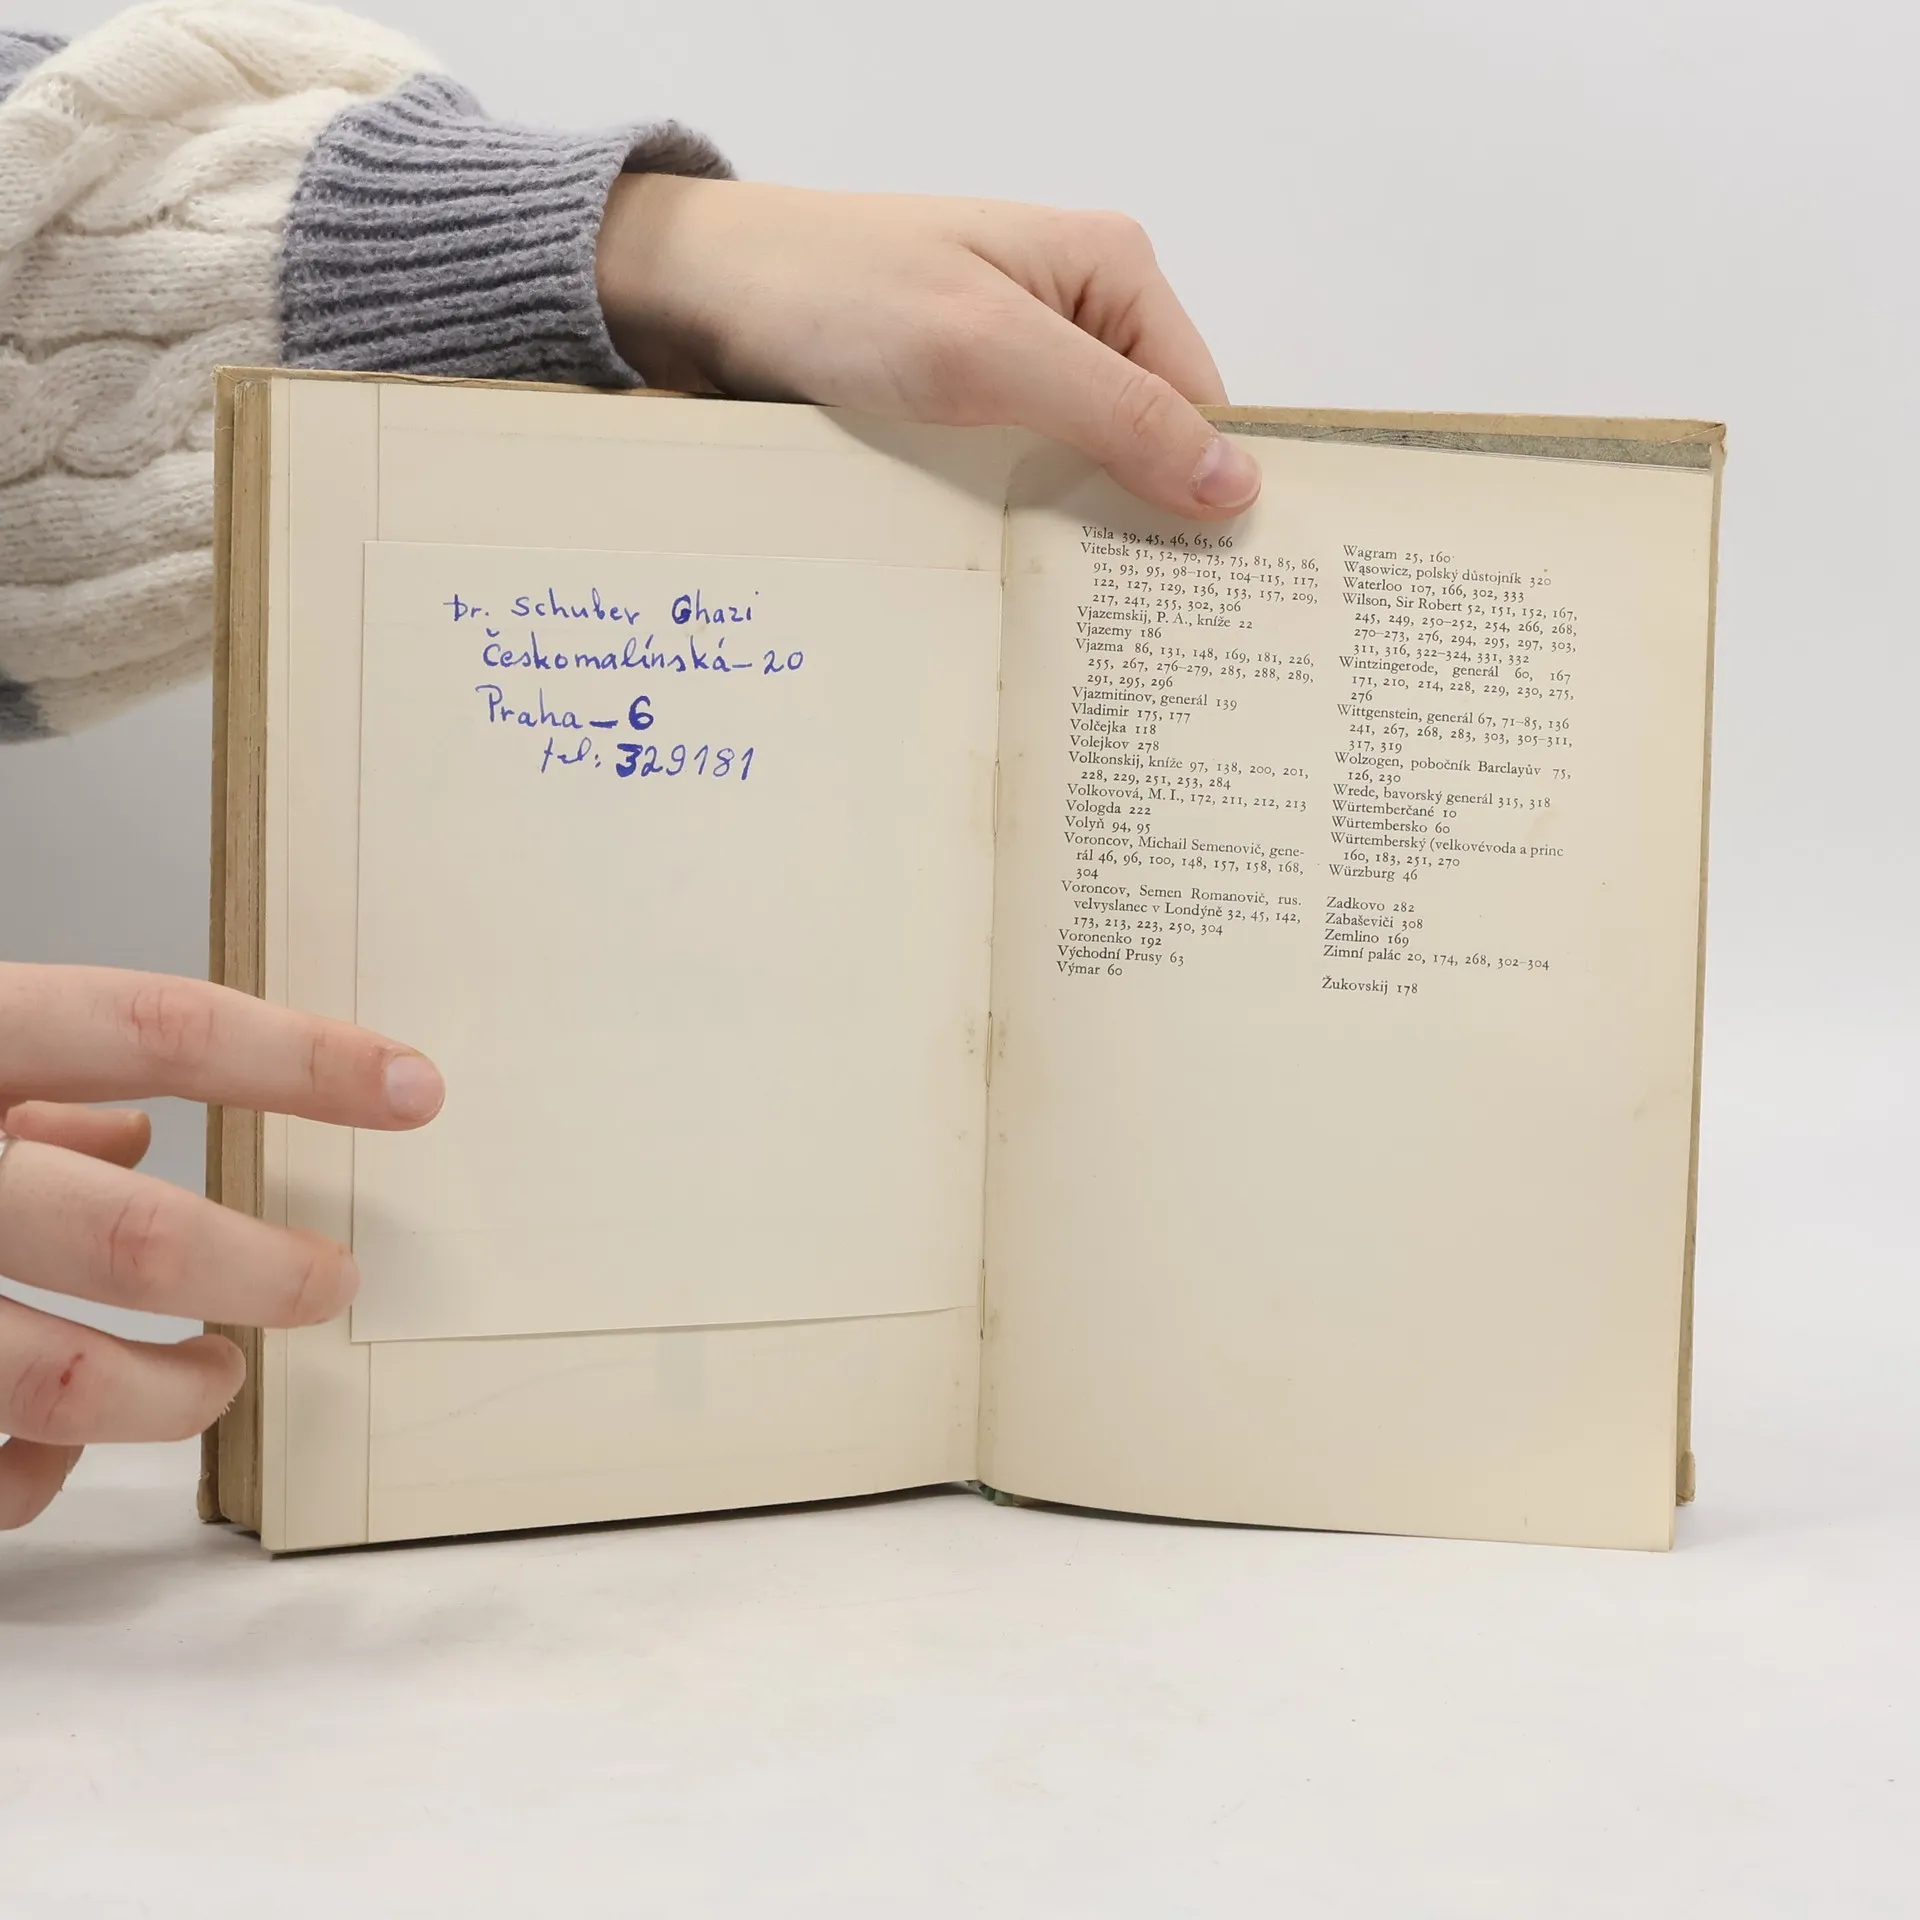 Dr. Schuber Ghazi
Českomalínská – 20
Praha – 6
tel: 329181
Visla 39, 45, 46, 65, 66
Vitebsk 51, 52, 70, 73, 75, 81, 85, 86,
91, 93, 95, 98–101, 104–115, 117,
122, 127, 129, 136, 153, 157, 209,
217, 241, 255, 302, 306
Vjazemskij, P. A., kníže 22
Vjazemy 186
Vjazma 86, 131, 148, 169, 181, 226,
255, 267, 276–279, 285, 288, 289,
291, 295, 296
Vjazmitinov, generál 139
Vladimir 175, 177
Volčejka 118
Volejkov 278
Volkonskij, kníže 97, 138, 200, 201,
228, 229, 251, 253, 284
Volkovová, M. I., 172, 211, 212, 213
Vologda 222
Volyň 94, 95
Voroncov, Michail Semenovič, gene-
rál 46, 96, 100, 148, 157, 158, 168,
304
Voroncov, Semen Romanovič, rus.
velvyslanec v Londýně 32, 45, 142,
173, 213, 223, 250, 304
Voronenko 192
Východní Prusy 63
Výmar 60
Wagram 25, 160
Wąsowicz, polský důstojník 320
Waterloo 107, 166, 302, 333
Wilson, Sir Robert 52, 151, 152, 167,
245, 249, 250–252, 254, 266, 268,
270–273, 276, 294, 295, 297, 303,
311, 316, 322–324, 331, 332
Wintzingerode, generál 60, 167
171, 210, 214, 228, 229, 230, 275,
276
Wittgenstein, generál 67, 71–85, 136
241, 267, 268, 283, 303, 305–311,
317, 319
Wolzogen, pobočník Barclayův 75,
126, 230
Wrede, bavorský generál 315, 318
Würtemberčané 10
Würtembersko 60
Würtemberský (velkovévoda a princ
160, 183, 251, 270
Würzburg 46
Zadkovo 282
Zabaševiči 308
Zemlino 169
Zimní palác 20, 174, 268, 302–304
Žukovskij 178